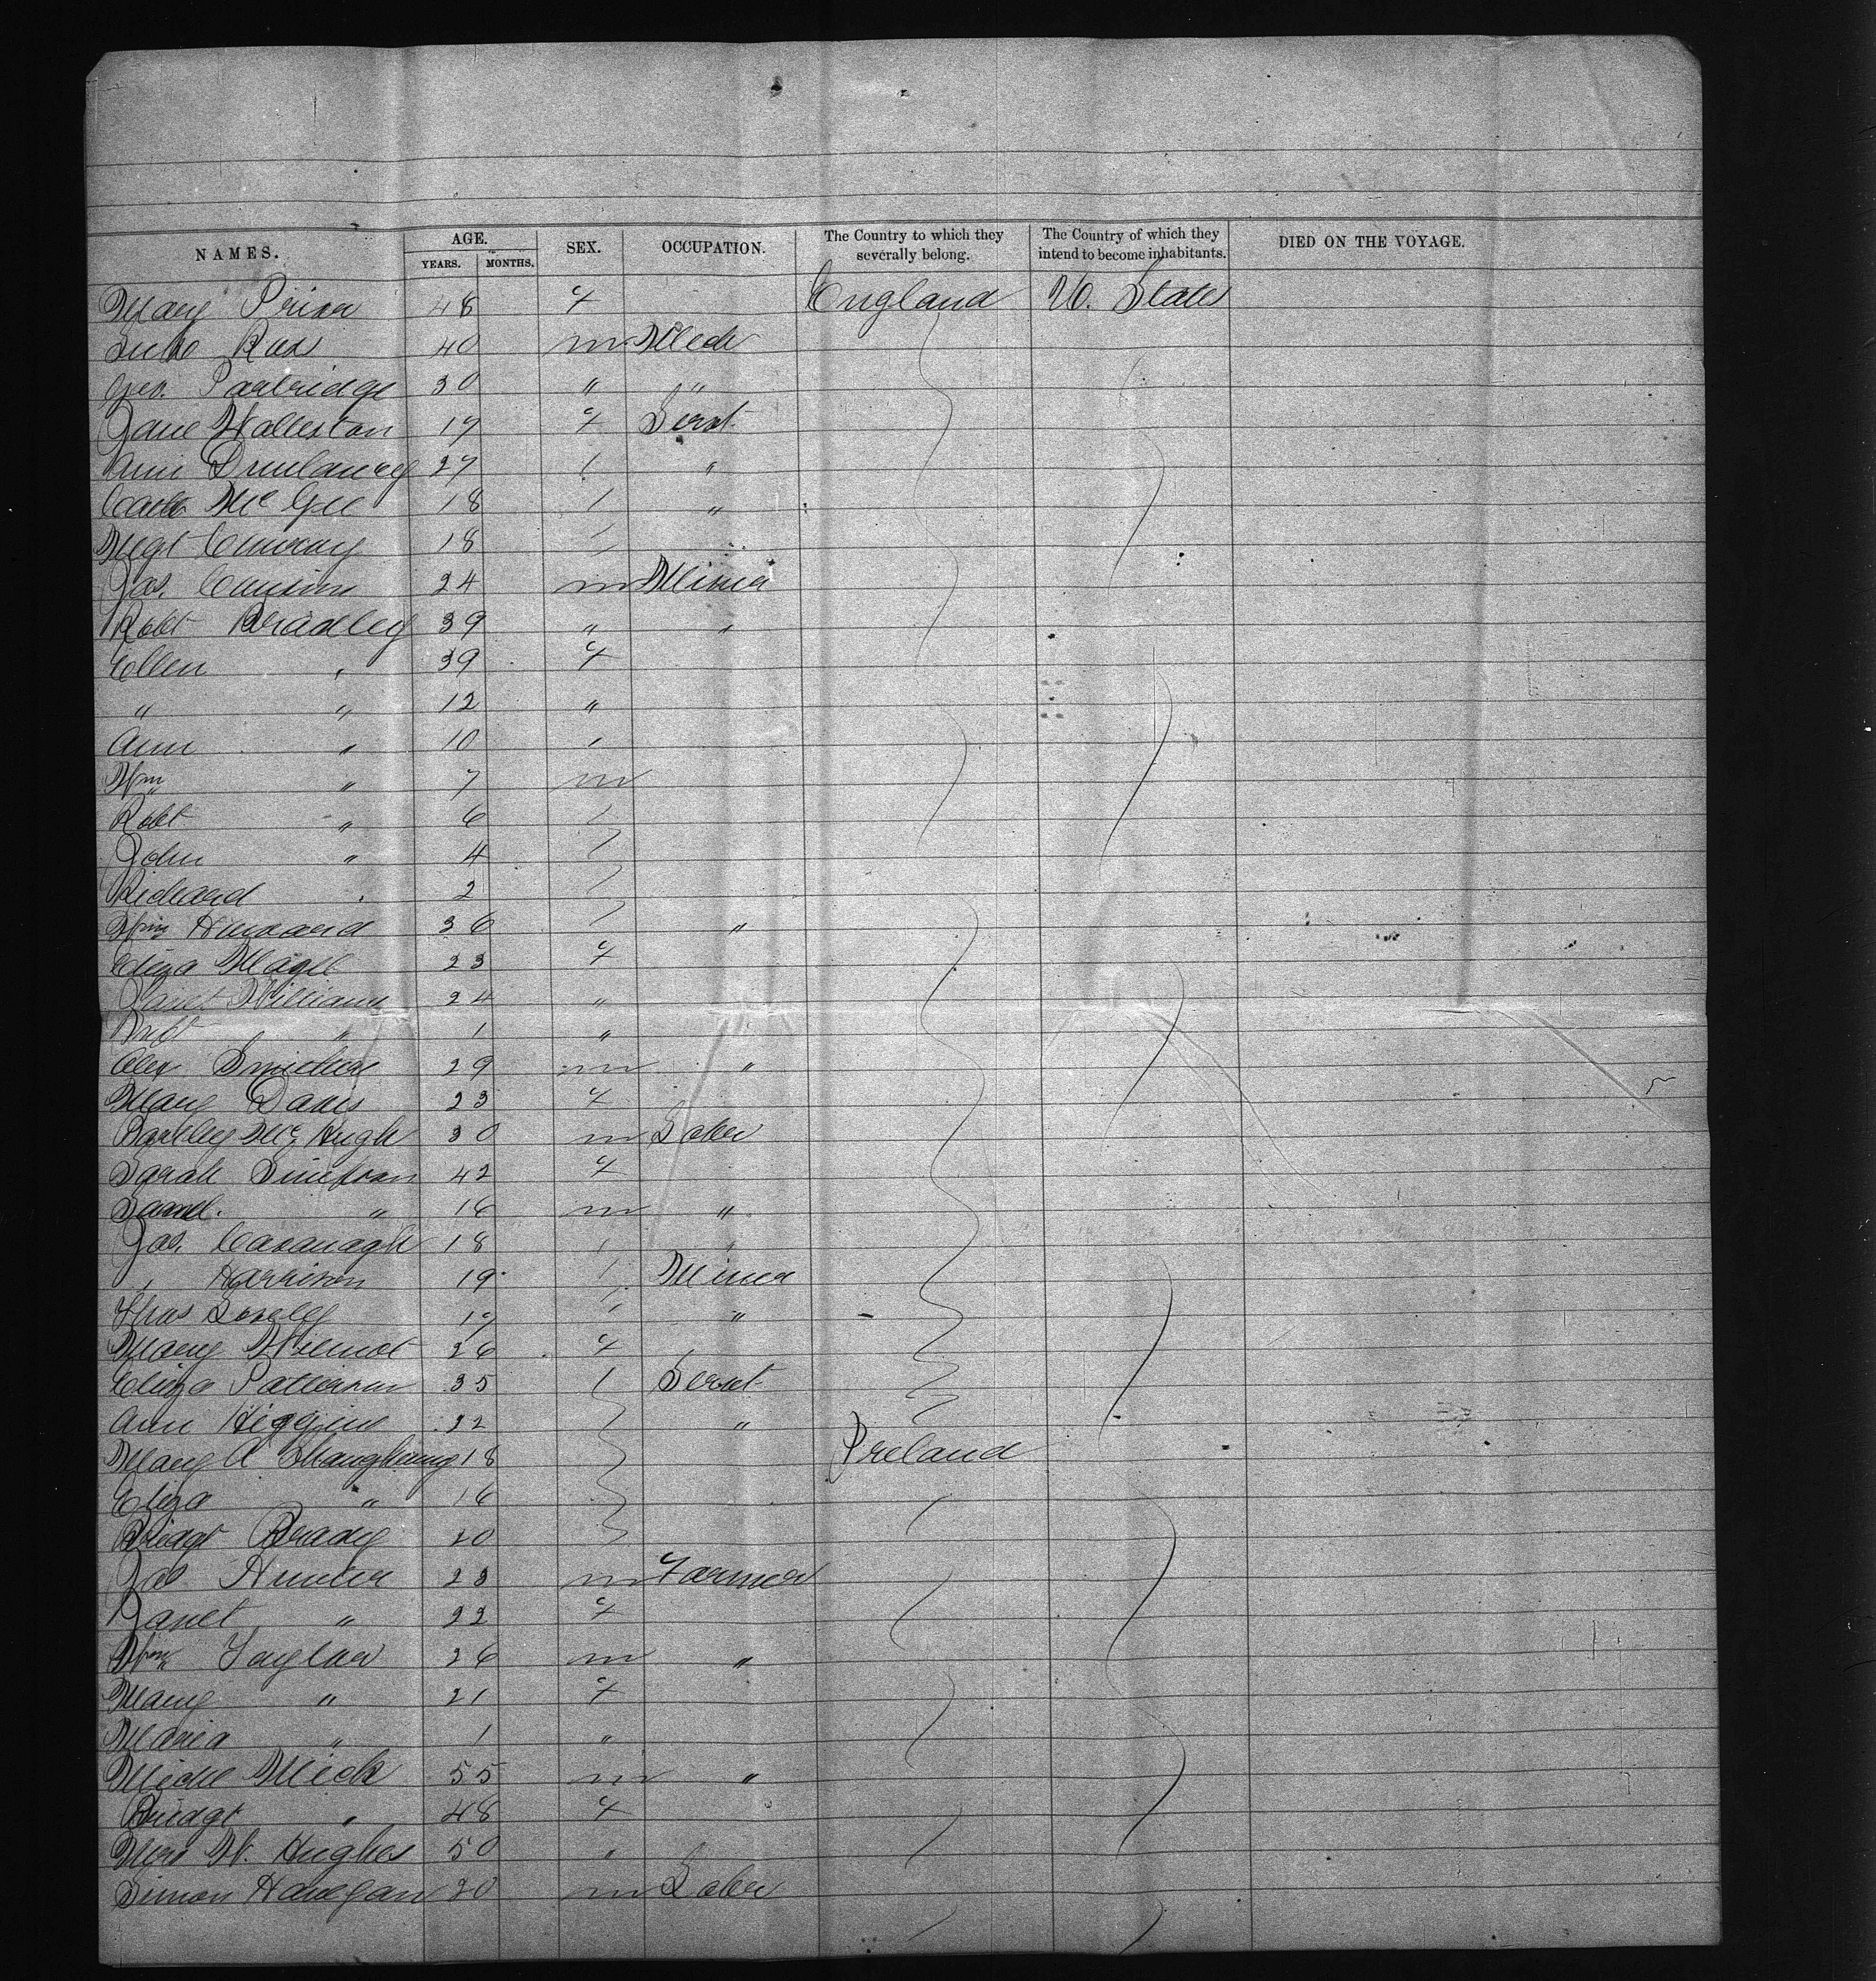 NAMES. AGE. SEX. OCCUPATION. The Country to which they severally belong. The Country of which they intend to become inhabitants. DIED ON THE VOYAGE.
YEARS. MONTHS.
Mary Prior 48 f England U. States
Ross 40 m Mech
Geo. Partridge 30 " "
Jane Wolleston 19 f Servt
Ann 27 "
Cath McGee 18 "
Mgt Conway 18
Jas. Cousins 24 m Miner
Robt Bradley 39 " "
Ellen " 39 f
" " 12 "
Ann " 10 "
Wm " 7 m
Robt " 6
John " 4
Richard " 2
Wm 36 "
Eliza 23 f
Janet Williams 24 "
" 1 "
Alex 29 m "
Mary Davis 23 f
Bartley McHugh 30 m Labr
Sarah Simpson 42 f
Saml. " 16 m "
Jas. Cavanagh 18 "
" Harrison 19 Miner
Thos 19 "
Mary Wilmot 26 f
Eliza Patterson 35 Servt
Ann Higgins 22 "
Mary A 18 Ireland
Eliza " 16
Bridgt Brady 20
Jas Hunter 23 m Farmer
Janet " 22 f
Wm Taylor 26 m "
Mary " 21 f
Maria " 1 "
Michl Mick 55 m "
Bridgt " 48 f
Mrs W. Hughes 50 "
Simon 20 m Labr